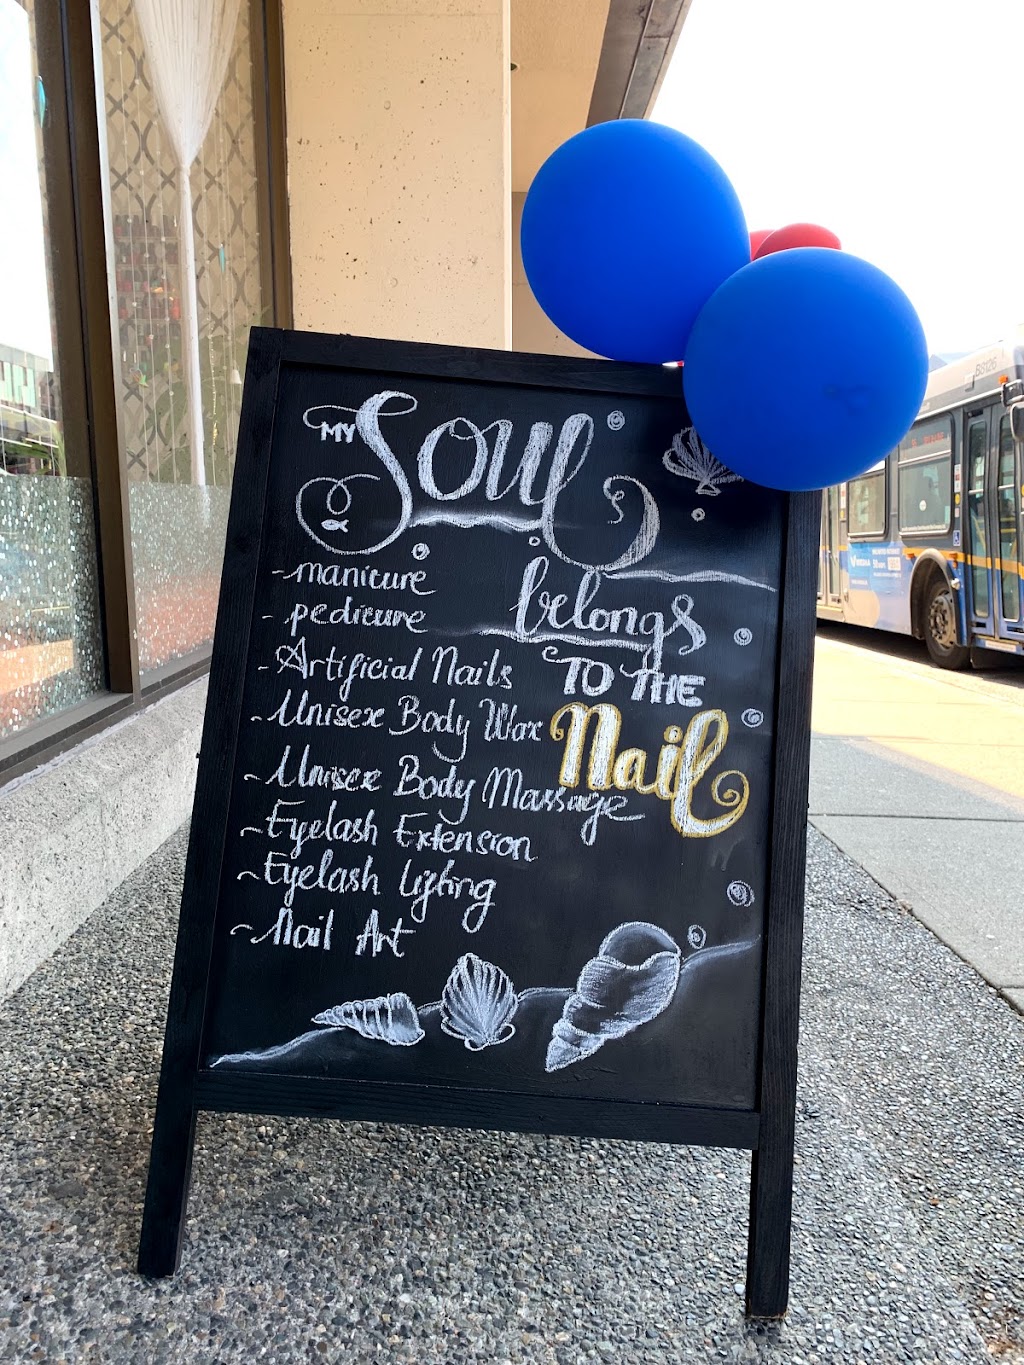 MY Soul
belongs
TO THE
Nail
- manicure
- pedicure
- Artificial Nails
- Unisex Body Wax
- Unisex Body Massage
- Eyelash Extension
- Eyelash Lifting
- Nail Art
B8126